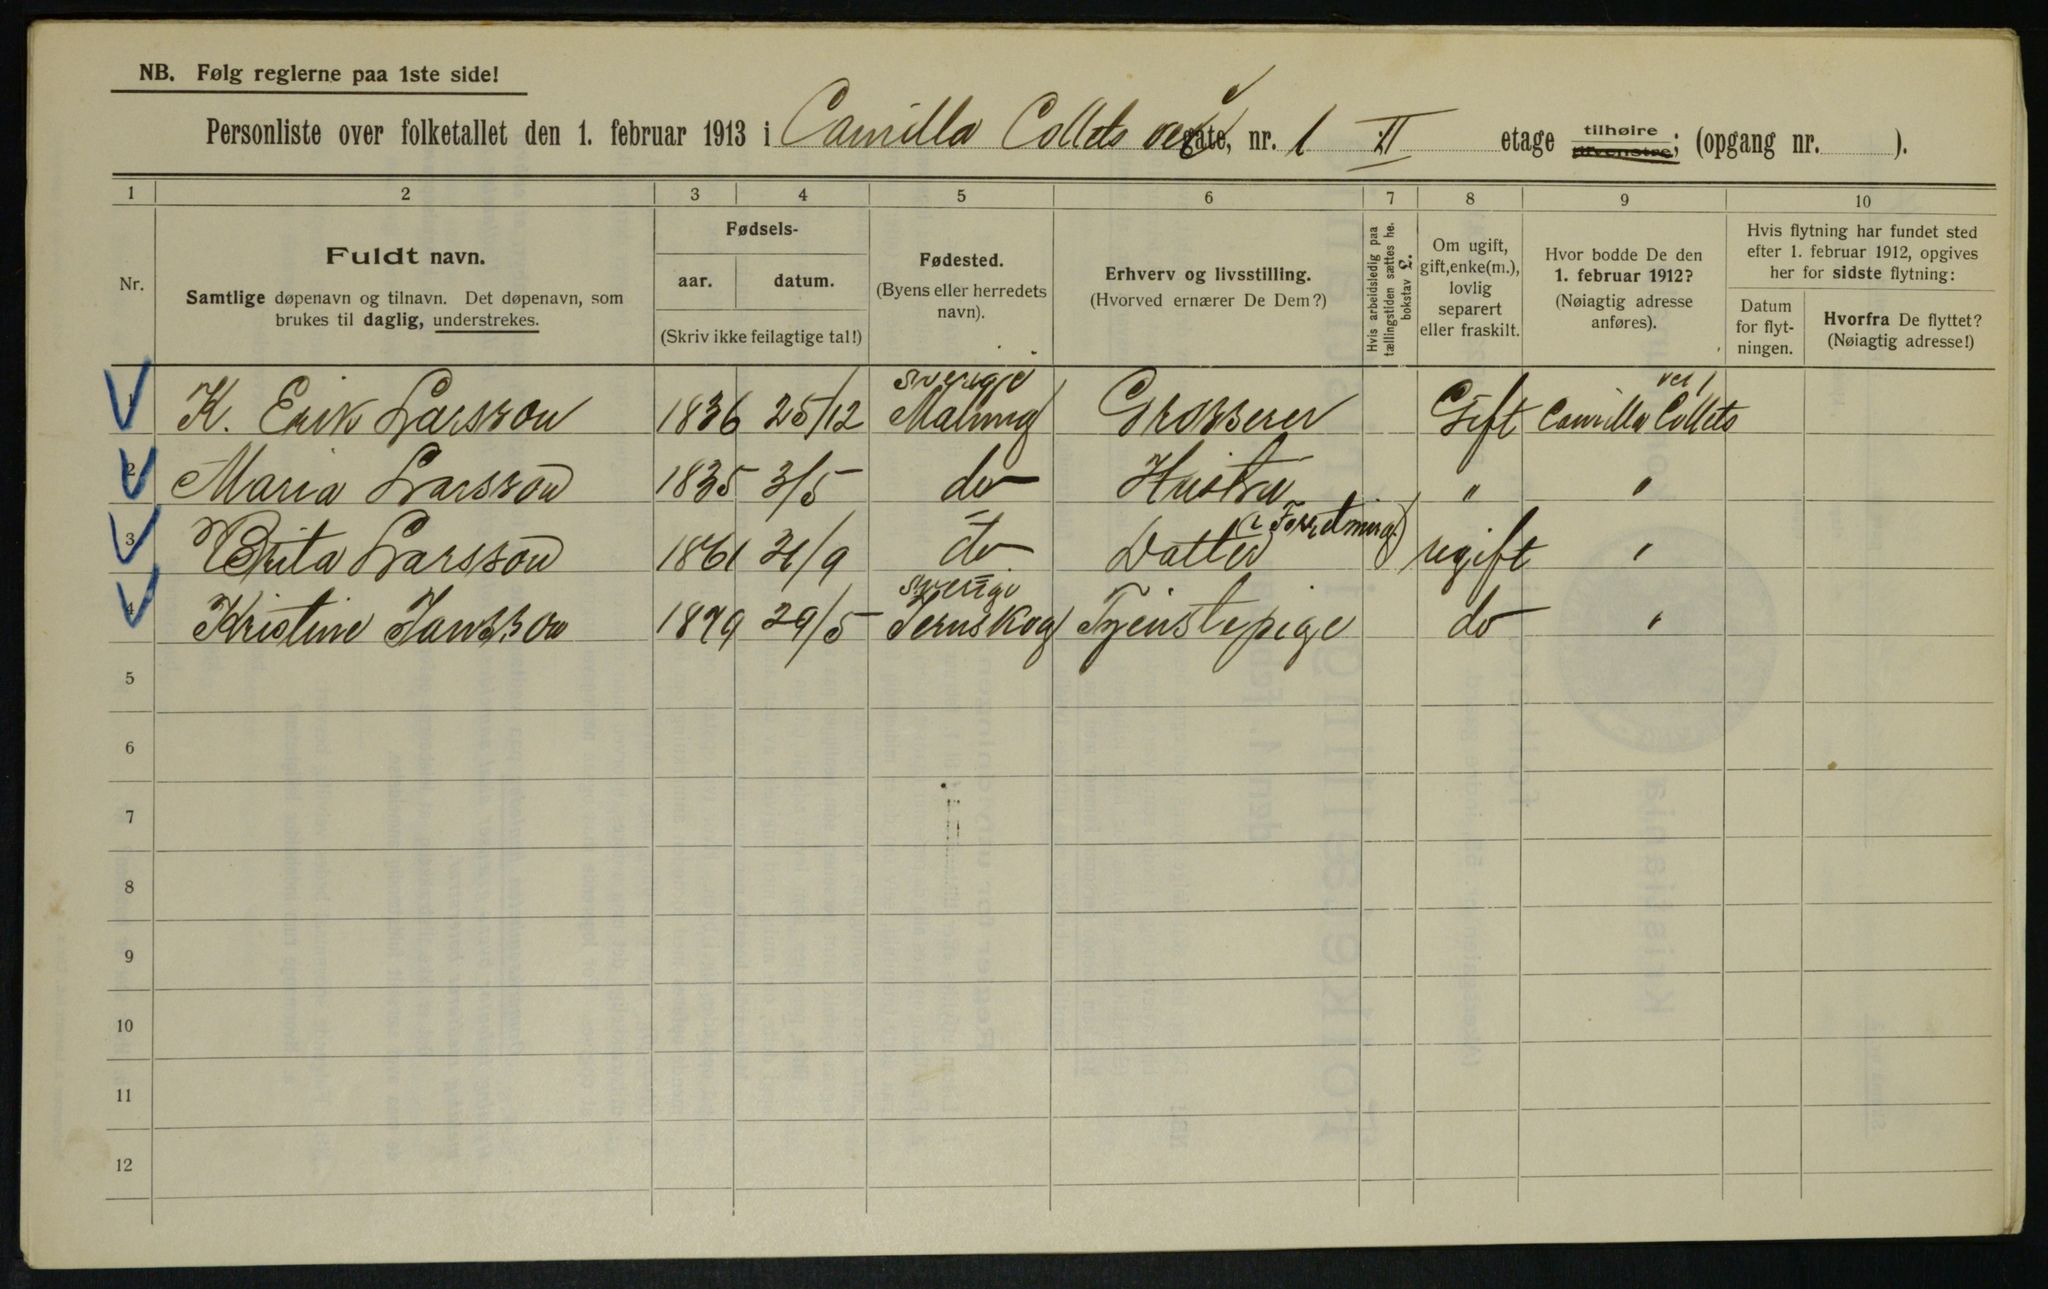 NB. Følg reglerne paa 1ste side!
Personliste over folketallet den 1. februar 1913 i Camilla Collets vei gate, nr. 1 II etage tilhøire tilvenstre; (opgang nr. ).
1 2 3 4 5 6 7 8 9 10
Nr.
Fuldt navn.
Samtlige døpenavn og tilnavn. Det døpenavn, som
brukes til daglig, understrekes.
Fødsels-
aar. datum.
(Skriv ikke feilagtige tal!)
Fødested.
(Byens eller herredets
navn).
Erhverv og livsstilling.
(Hvorved ernærer De Dem?)
Hvis arbeidsledig paa
tællingstiden sættes he.
bokstav L.
Om ugift,
gift, enke(m.),
lovlig
separert
eller fraskilt.
Hvor bodde De den
1. februar 1912?
(Nøiagtig adresse
anføres).
Hvis flytning har fundet sted
efter 1. februar 1912, opgives
her for sidste flytning:
Datum
for flyt-
ningen.
Hvorfra De flyttet?
(Nøiagtig adresse!)
Sverige vei 1
1 K. Erik Larsson 1836 25/12 Malung Grosserer Gift Camilla Collets
2 Maria Larsson 1835 3/5 do Hustru " "
3 Brita Larsson 1861 21/9 do Datter (i Forretning) ugift "
Sverige
4 Kristine Jansson 1879 29/5 Jernskog Tjenstepige do "
5
6
7
8
9
10
11
12